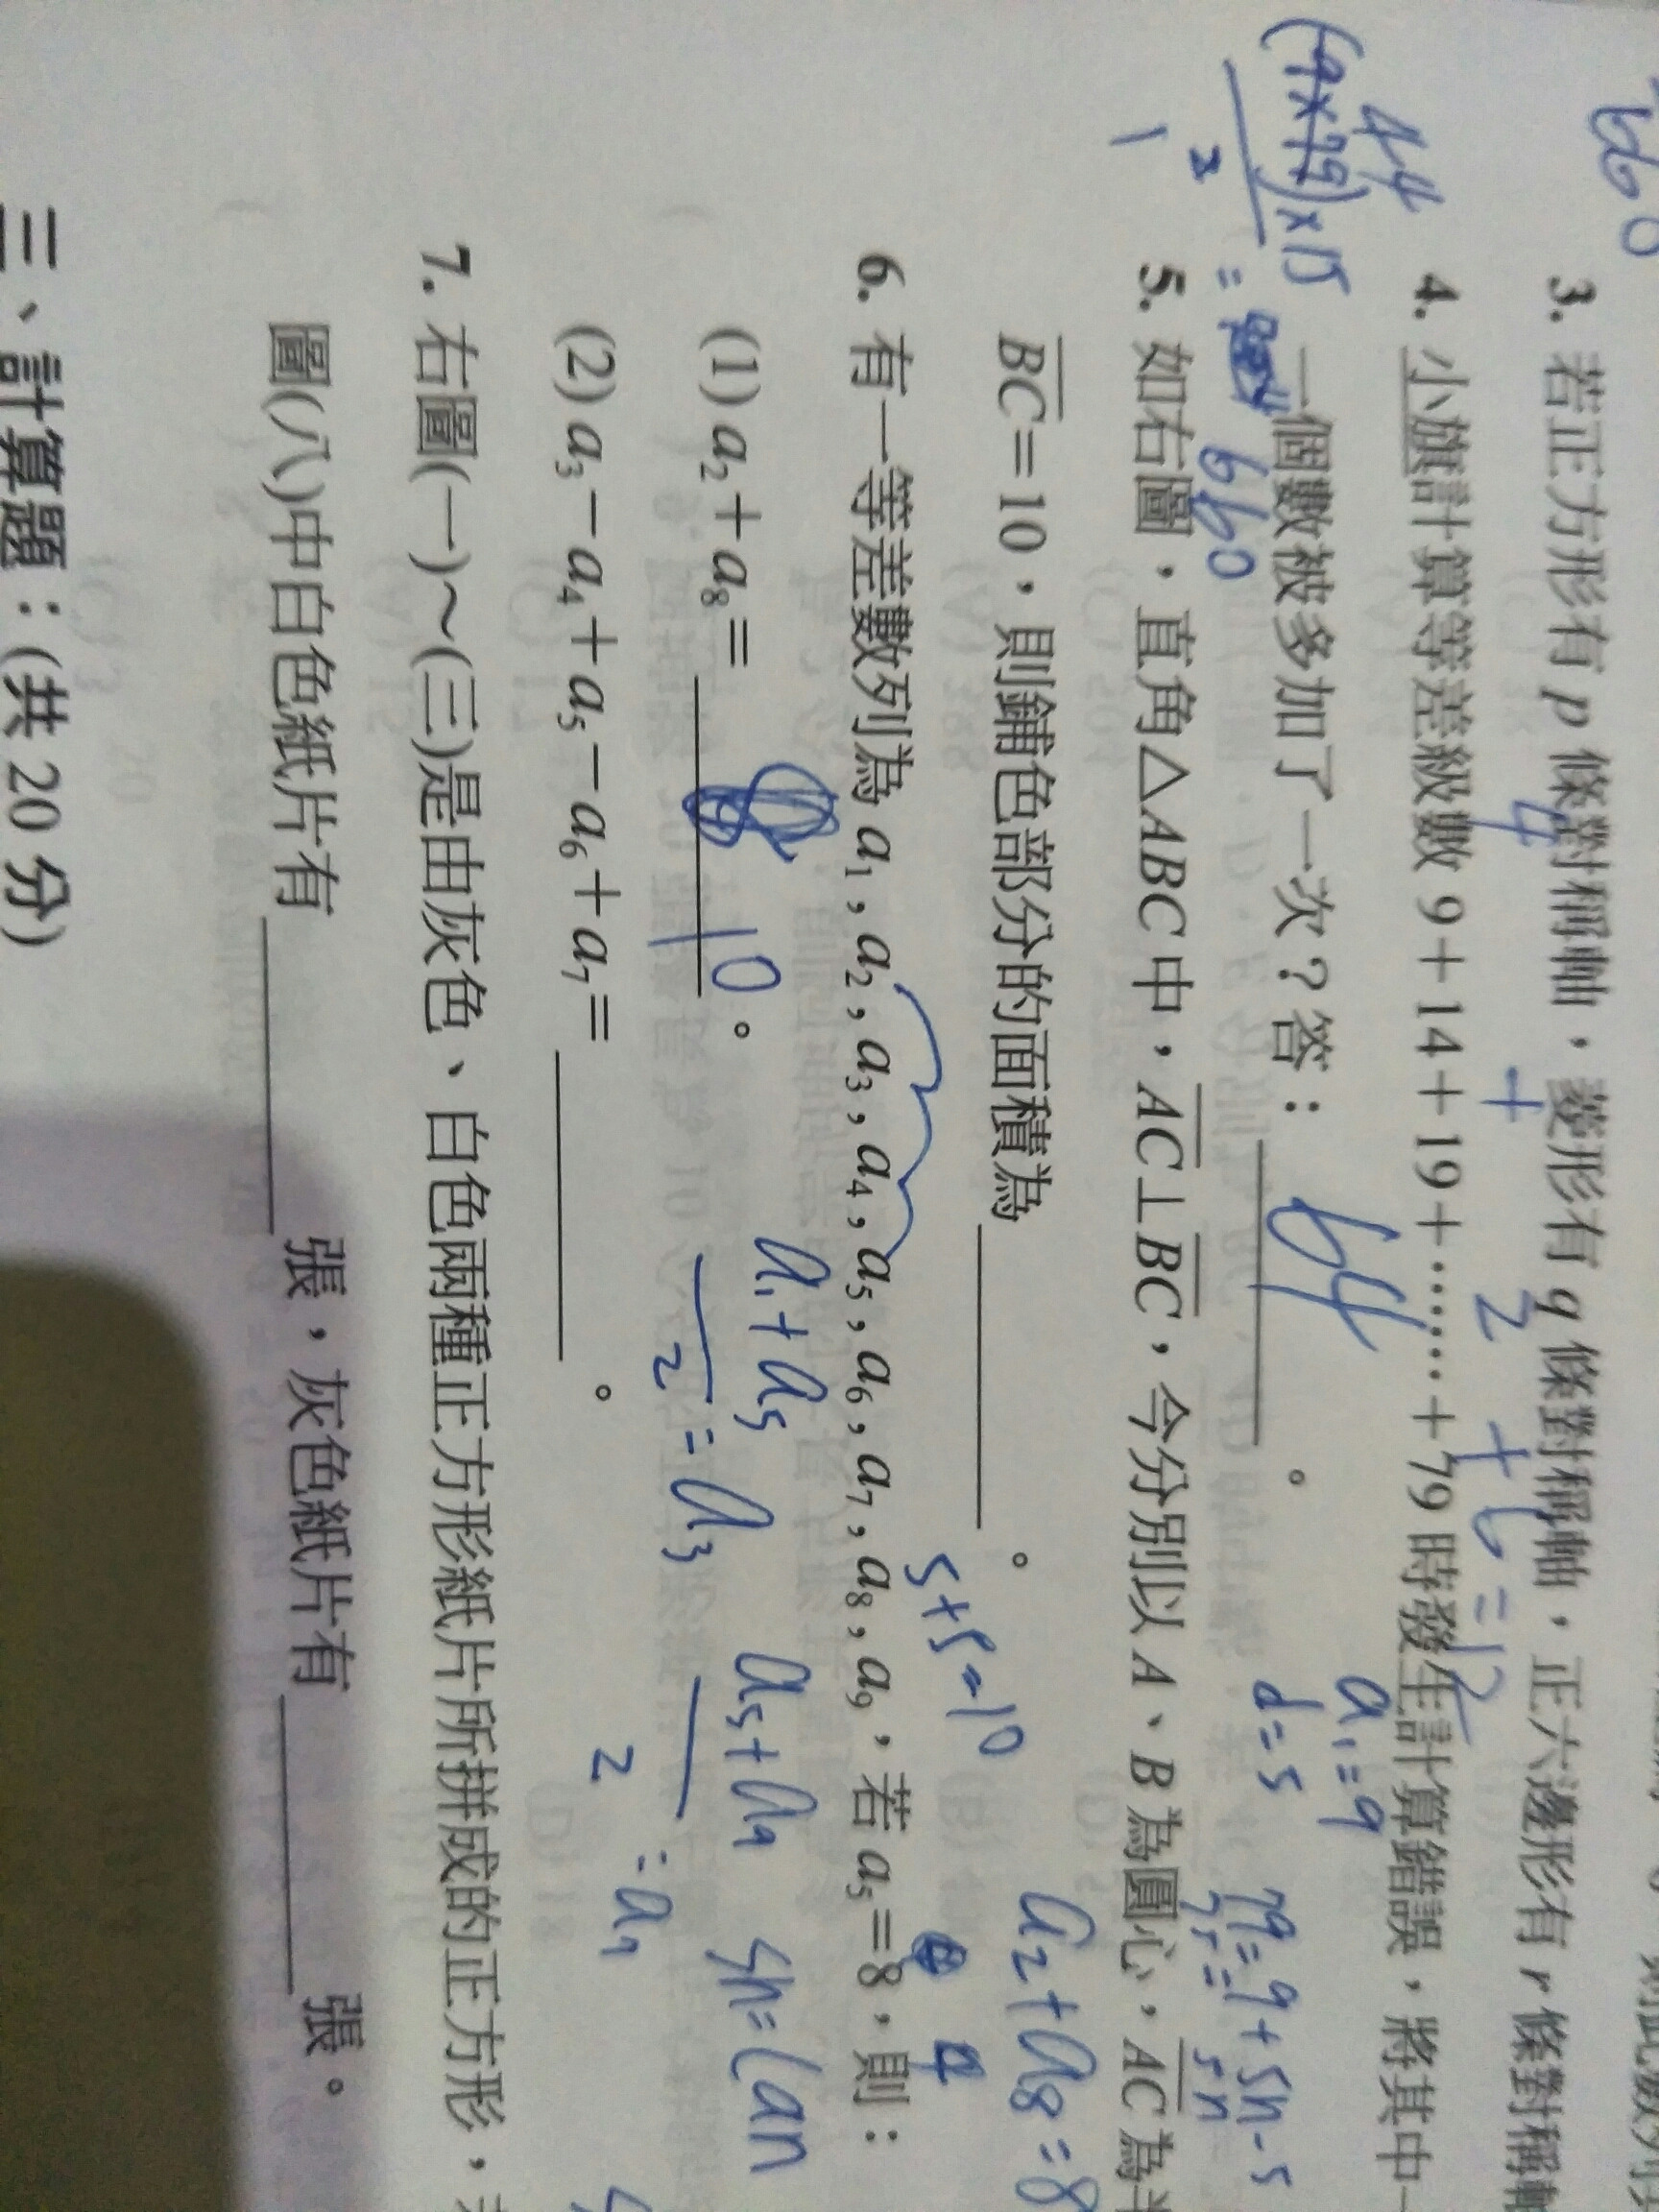 3. 若正方形有 p 條對稱軸，菱形有 q 條對稱軸，正六邊形有 r 條對稱軸
4 + 2 + 6 = 12
4. 小旗計算等差級數 9＋14＋19＋……＋79 時發生計算錯誤，將其中一
一個數被多加了一次？答：64。
a₁=9
d=5
79=9+5n-5
75=5n
44
(9×79)×15
2
= 660
5. 如右圖，直角△ABC 中，AC⊥BC，今分別以 A、B 為圓心，AC 為半
BC＝10，則鋪色部分的面積為。
5+5=10
a₂+a₈=8
6. 有一等差數列為 a₁，a₂，a₃，a₄，a₅，a₆，a₇，a₈，a₉，若 a₅＝8，則：
(1) a₂＋a₈＝10。
a₁+a₅
2
=a₃
a₅+a₉
2
=a₇
(2) a₃－a₄＋a₅－a₆＋a₇＝。
7. 右圖(一)～(三)是由灰色、白色兩種正方形紙片所拼成的正方形，
圖(八)中白色紙片有張，灰色紙片有張。
三、計算題：(共 20 分)